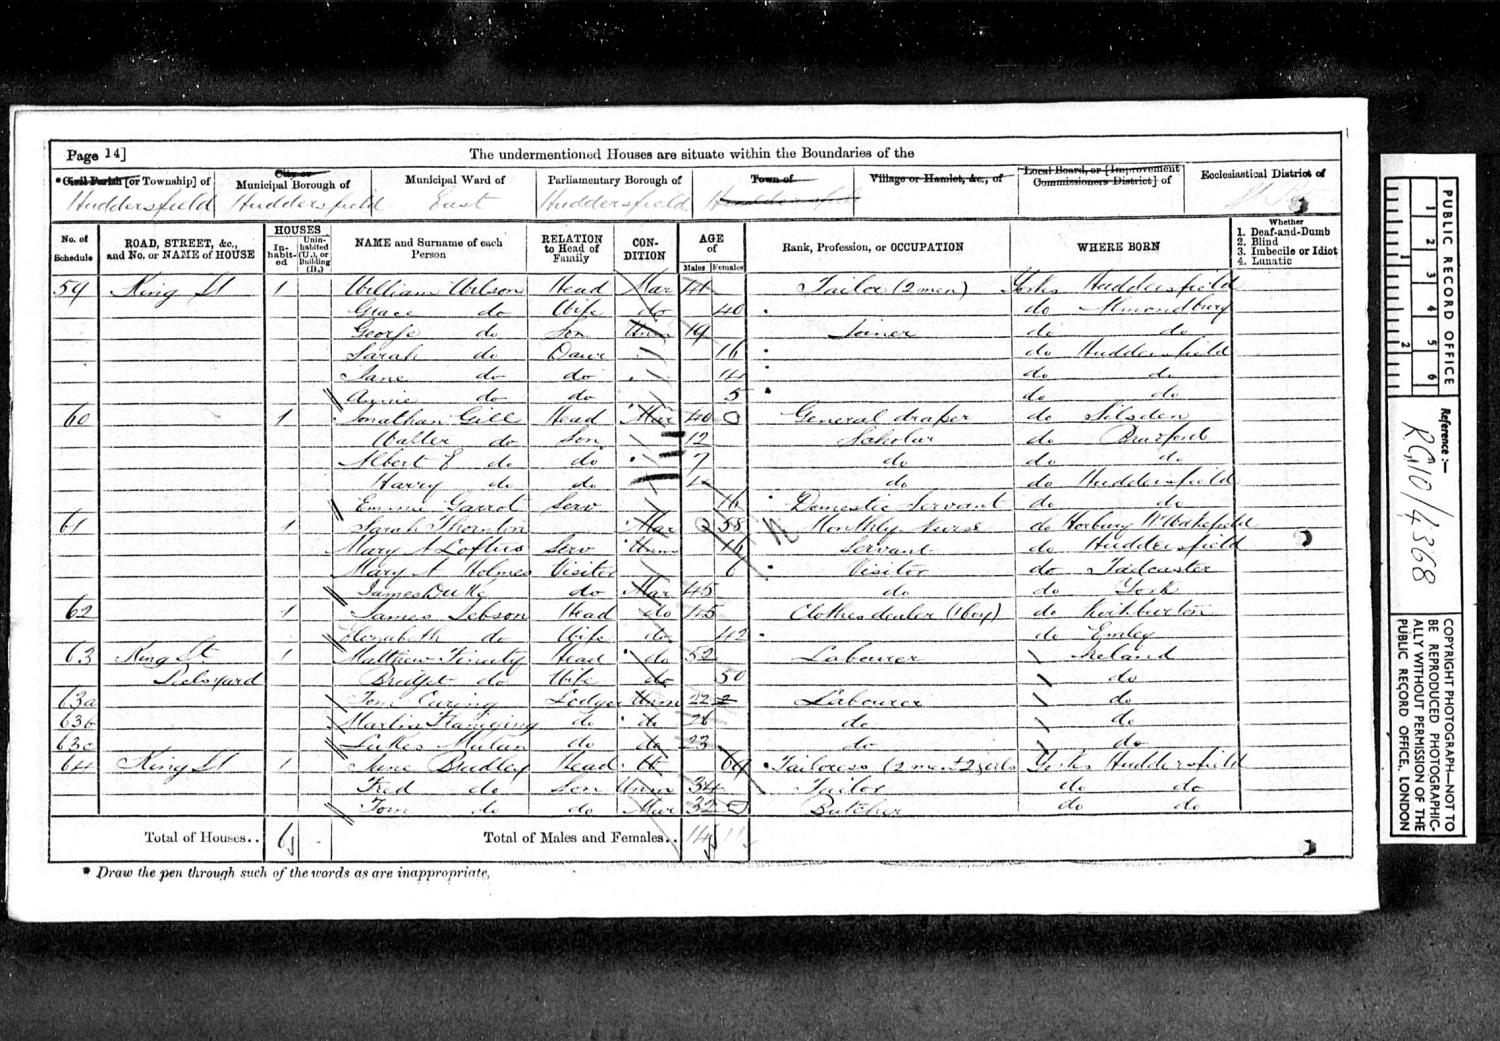 Page 14]
The undermentioned Houses are situate within the Boundaries of the
* Civil Parish [or Township] of
City or Municipal Borough of
Municipal Ward of
Parliamentary Borough of
Town of
Village or Hamlet, &c., of
Local Board, or [Improvement Commissioners District] of
Ecclesiastical District of
Huddersfield Huddersfield East Huddersfield Huddersfield
No. of Schedule
ROAD, STREET, &c., and No. or NAME of HOUSE
HOUSES
In-habit-ed
Unin-habited (U.), or Building (B.)
NAME and Surname of each Person
RELATION to Head of Family
CON-DITION
AGE of
Males Females
Rank, Profession, or OCCUPATION
WHERE BORN
Whether
1. Deaf-and-Dumb
2. Blind
3. Imbecile or Idiot
4. Lunatic
59 King St 1 William Wilson Head Mar 41 Tailor (2 men) Yorks Huddersfield
Grace do Wife do 40 do Almondbury
George do Son Unm 19 Joiner do do
Sarah do Daur 16 do Huddersfield
Jane do do 14 do do
Annie do do 5 do do
60 1 Jonathan Gill Head Mar 40 General draper do Silsden
Walter do Son 12 Scholar do
Albert E do do 7 do do do
Harry do do do do Huddersfield
Emma Garrot Serv 16 Domestic Servant do do
61 1 Sarah Thornton Mar 58 Monthly Nurse do Horbury Wakefield
Mary A Loftus Serv Unm 16 Servant do Huddersfield
Mary A Holmes Visitor Visitor do Tadcaster
James Duke do Mar 45 do do York
62 1 James Head do 45 Clothes dealer (1 boy) do
Elizabeth do Wife do 42 do Emley
63 King St 1 Matthew Head do 52 Labourer Ireland
Bridget do Wife do 50 do
63a Tom Lodger Unm 22 Labourer do
63b Martin do do 26 do do
63c Lukes do do 23 do do
64 King St 1 Jane Head 69 Tailoress (2 men + 2 girls Yorks Huddersfield
Fred do Son Unm 34 Tailor do do
Tom do do Mar 32 Butcher do do
Total of Houses.. 6
Total of Males and Females.. 14 11
* Draw the pen through such of the words as are inappropriate.
PUBLIC RECORD OFFICE
1 2 3 4 5 6
1 2
Reference:-
RG10/4368
COPYRIGHT PHOTOGRAPH—NOT TO BE REPRODUCED PHOTOGRAPHIC-ALLY WITHOUT PERMISSION OF THE PUBLIC RECORD OFFICE, LONDON